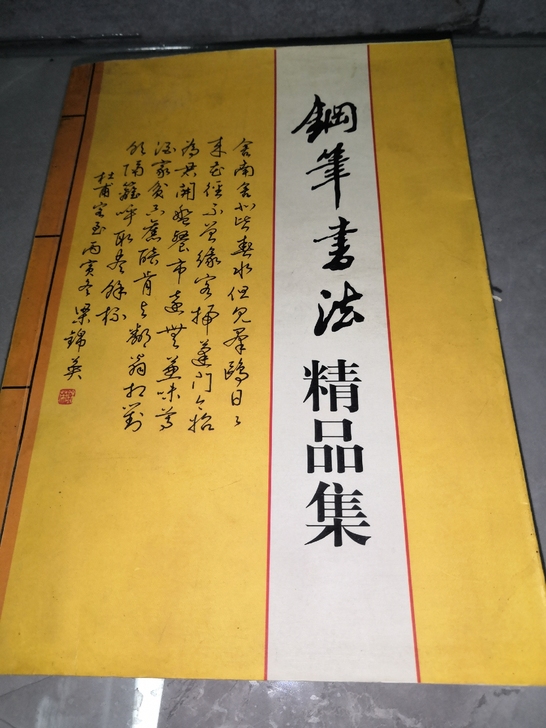 鋼筆書法精品集
舍南舍北皆春水但見羣鷗日々
來花徑不曾緣客掃蓬門今始
為君開盤飧市遠無兼味尊
酒家貧只舊醅肯與鄰翁相對
飲隔籬呼取盡餘杯
杜甫客至丙寅冬梁錦英